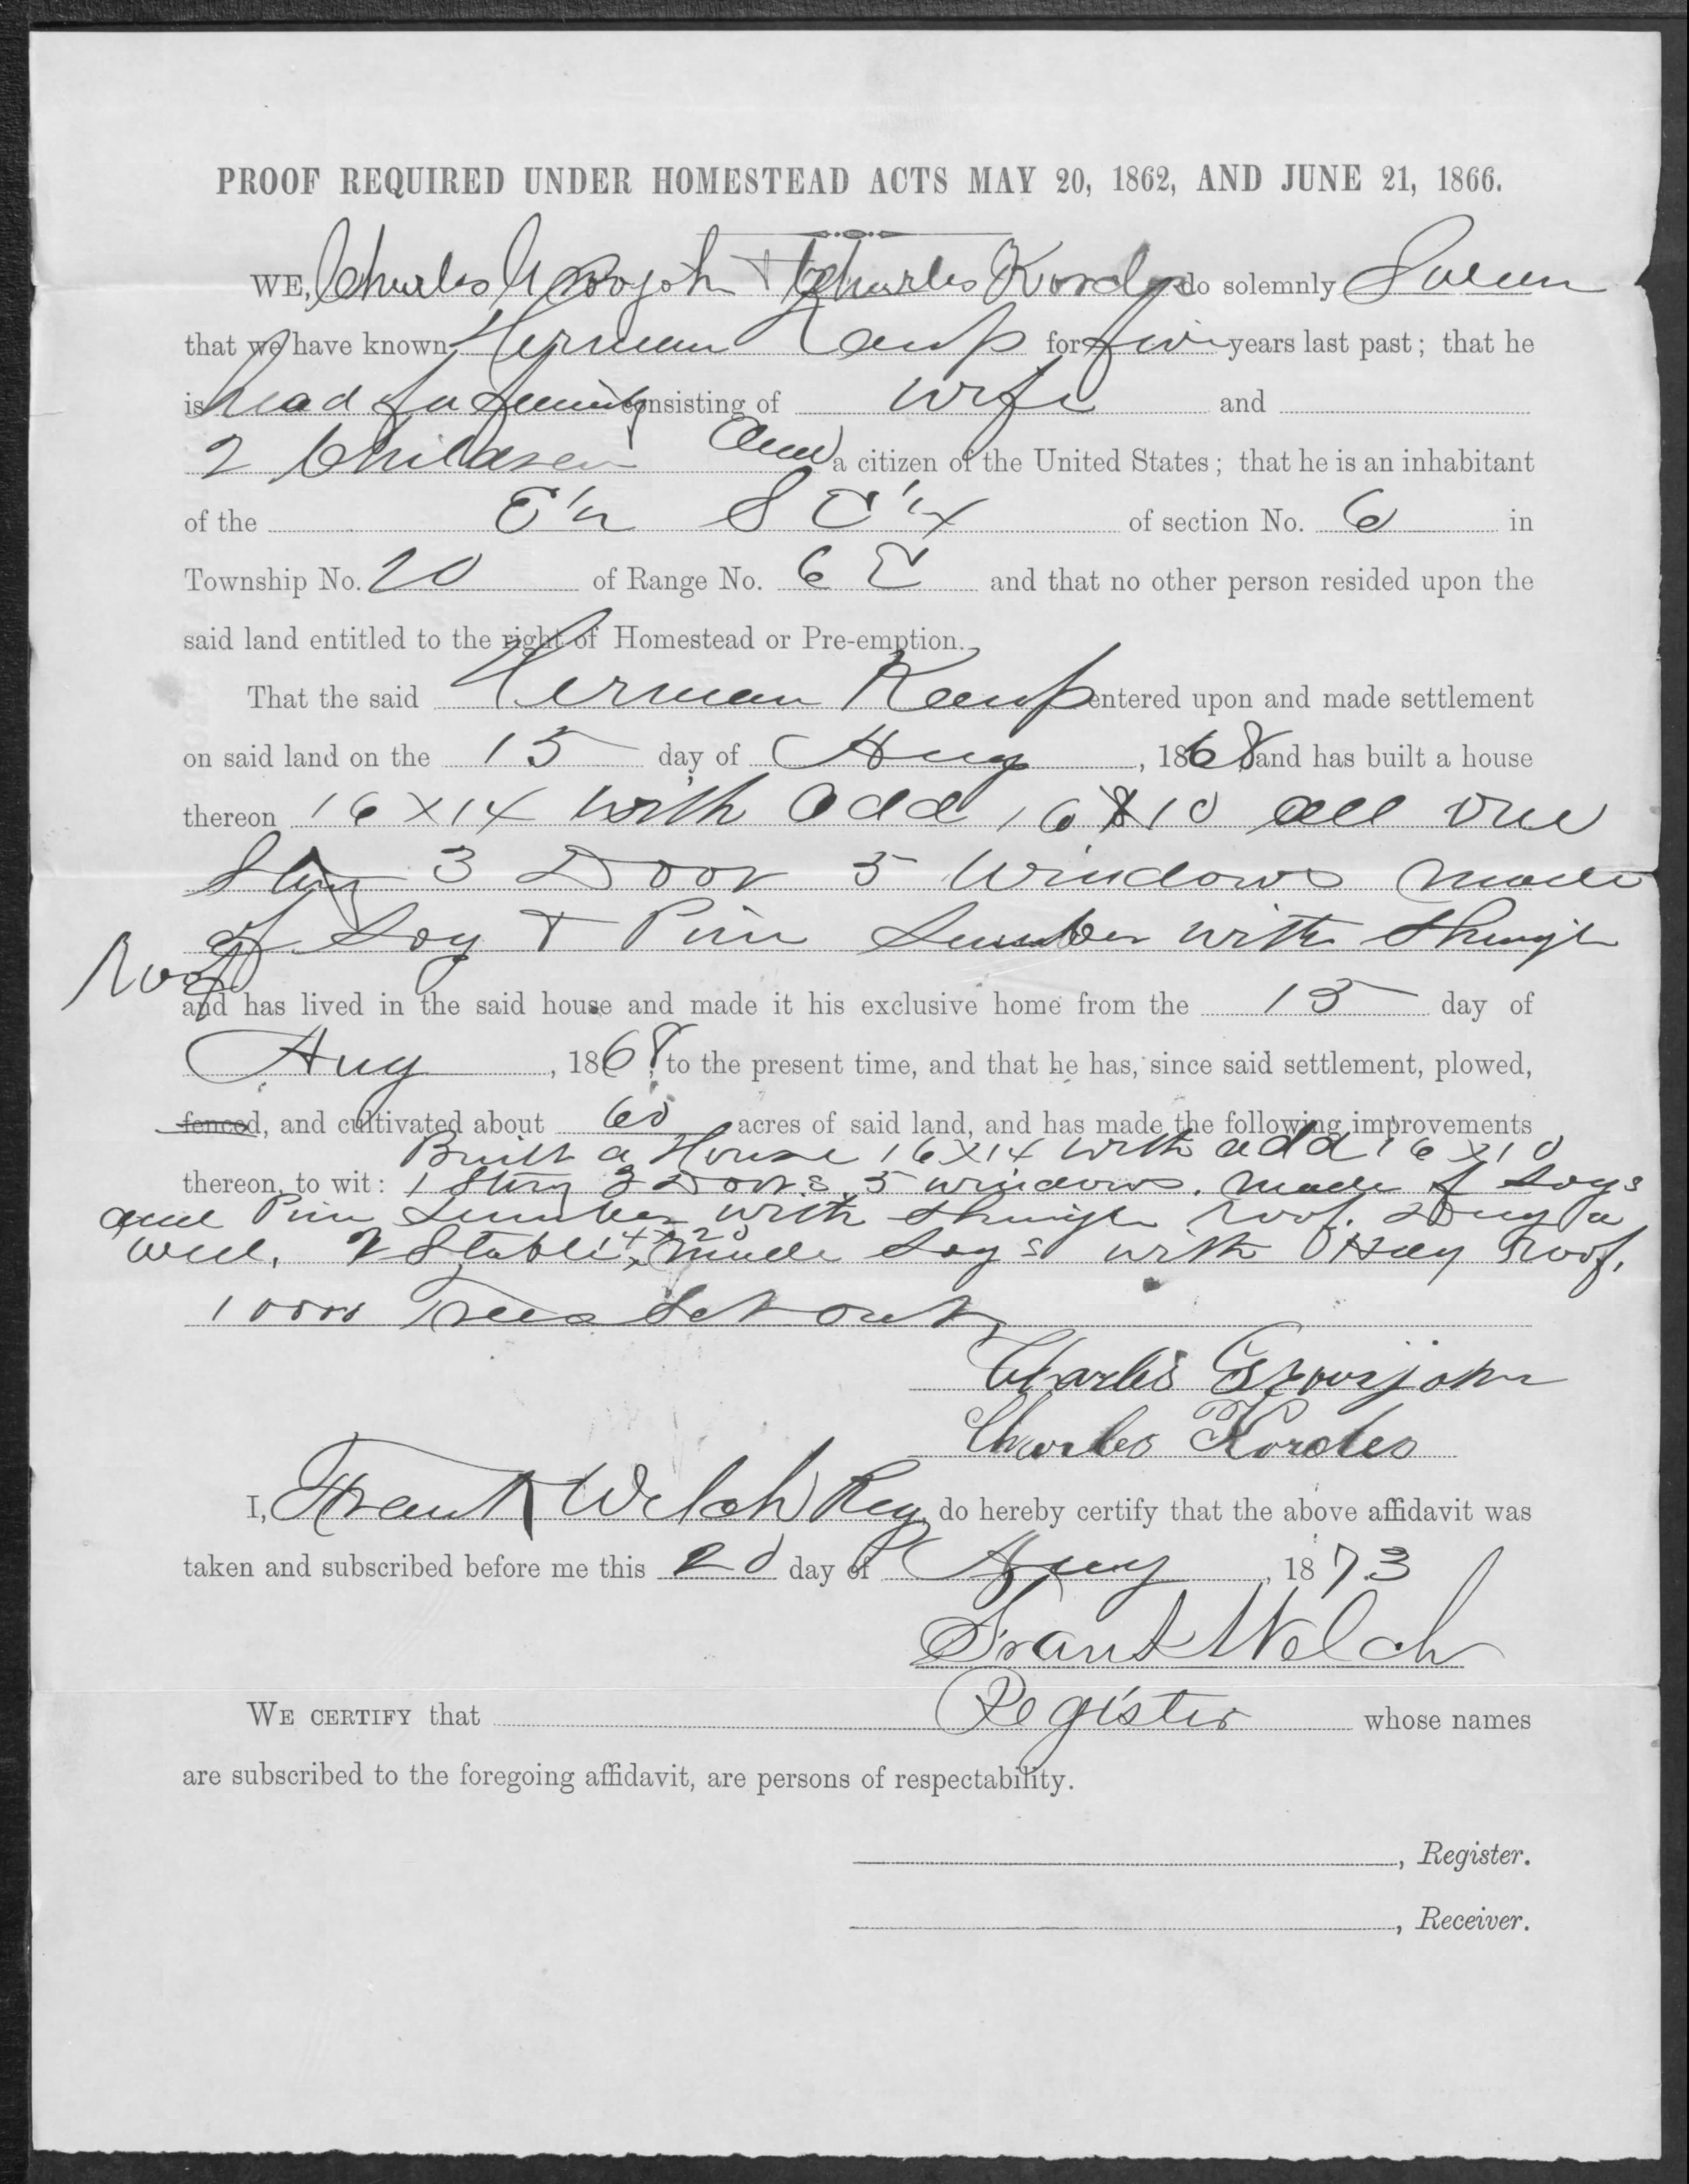 PROOF REQUIRED UNDER HOMESTEAD ACTS MAY 20, 1862, AND JUNE 21, 1866.
WE, Charles & Charles Kordes do solemnly Swear
that we have known Herman Kemp for five years last past; that he
is head of a family consisting of wife and
2 Children and a citizen of the United States; that he is an inhabitant
of the E 1/2 S E 1/4 of section No. 6 in
Township No. 20 of Range No. 6 E and that no other person resided upon the
said land entitled to the right of Homestead or Pre-emption.
That the said Herman Kemp entered upon and made settlement
on said land on the 15 day of Aug, 1868 and has built a house
thereon 16 x 14 with add 16 x 10 all one
Story 3 Door 5 Windows made
of Log & Pine Lumber with Shingle
Roof
and has lived in the said house and made it his exclusive home from the 15 day of
Aug, 1868, to the present time, and that he has, since said settlement, plowed,
fenced, and cultivated about 60 acres of said land, and has made the following improvements
thereon, to wit: Built a House 16 x 14 with add 16 x 10
1 Story 3 Doors 5 windows. made of Logs
and Pine Lumber with Shingle roof. Dug a
well. 2 Stable 14 x 20 made Logs with Hay Roof.
Trees Set out
Charles
Charles Kordes
I, Frank Welch Reg, do hereby certify that the above affidavit was
taken and subscribed before me this 20 day of Aug, 1873
Frank Welch
Register
WE CERTIFY that whose names
are subscribed to the foregoing affidavit, are persons of respectability.
, Register.
, Receiver.